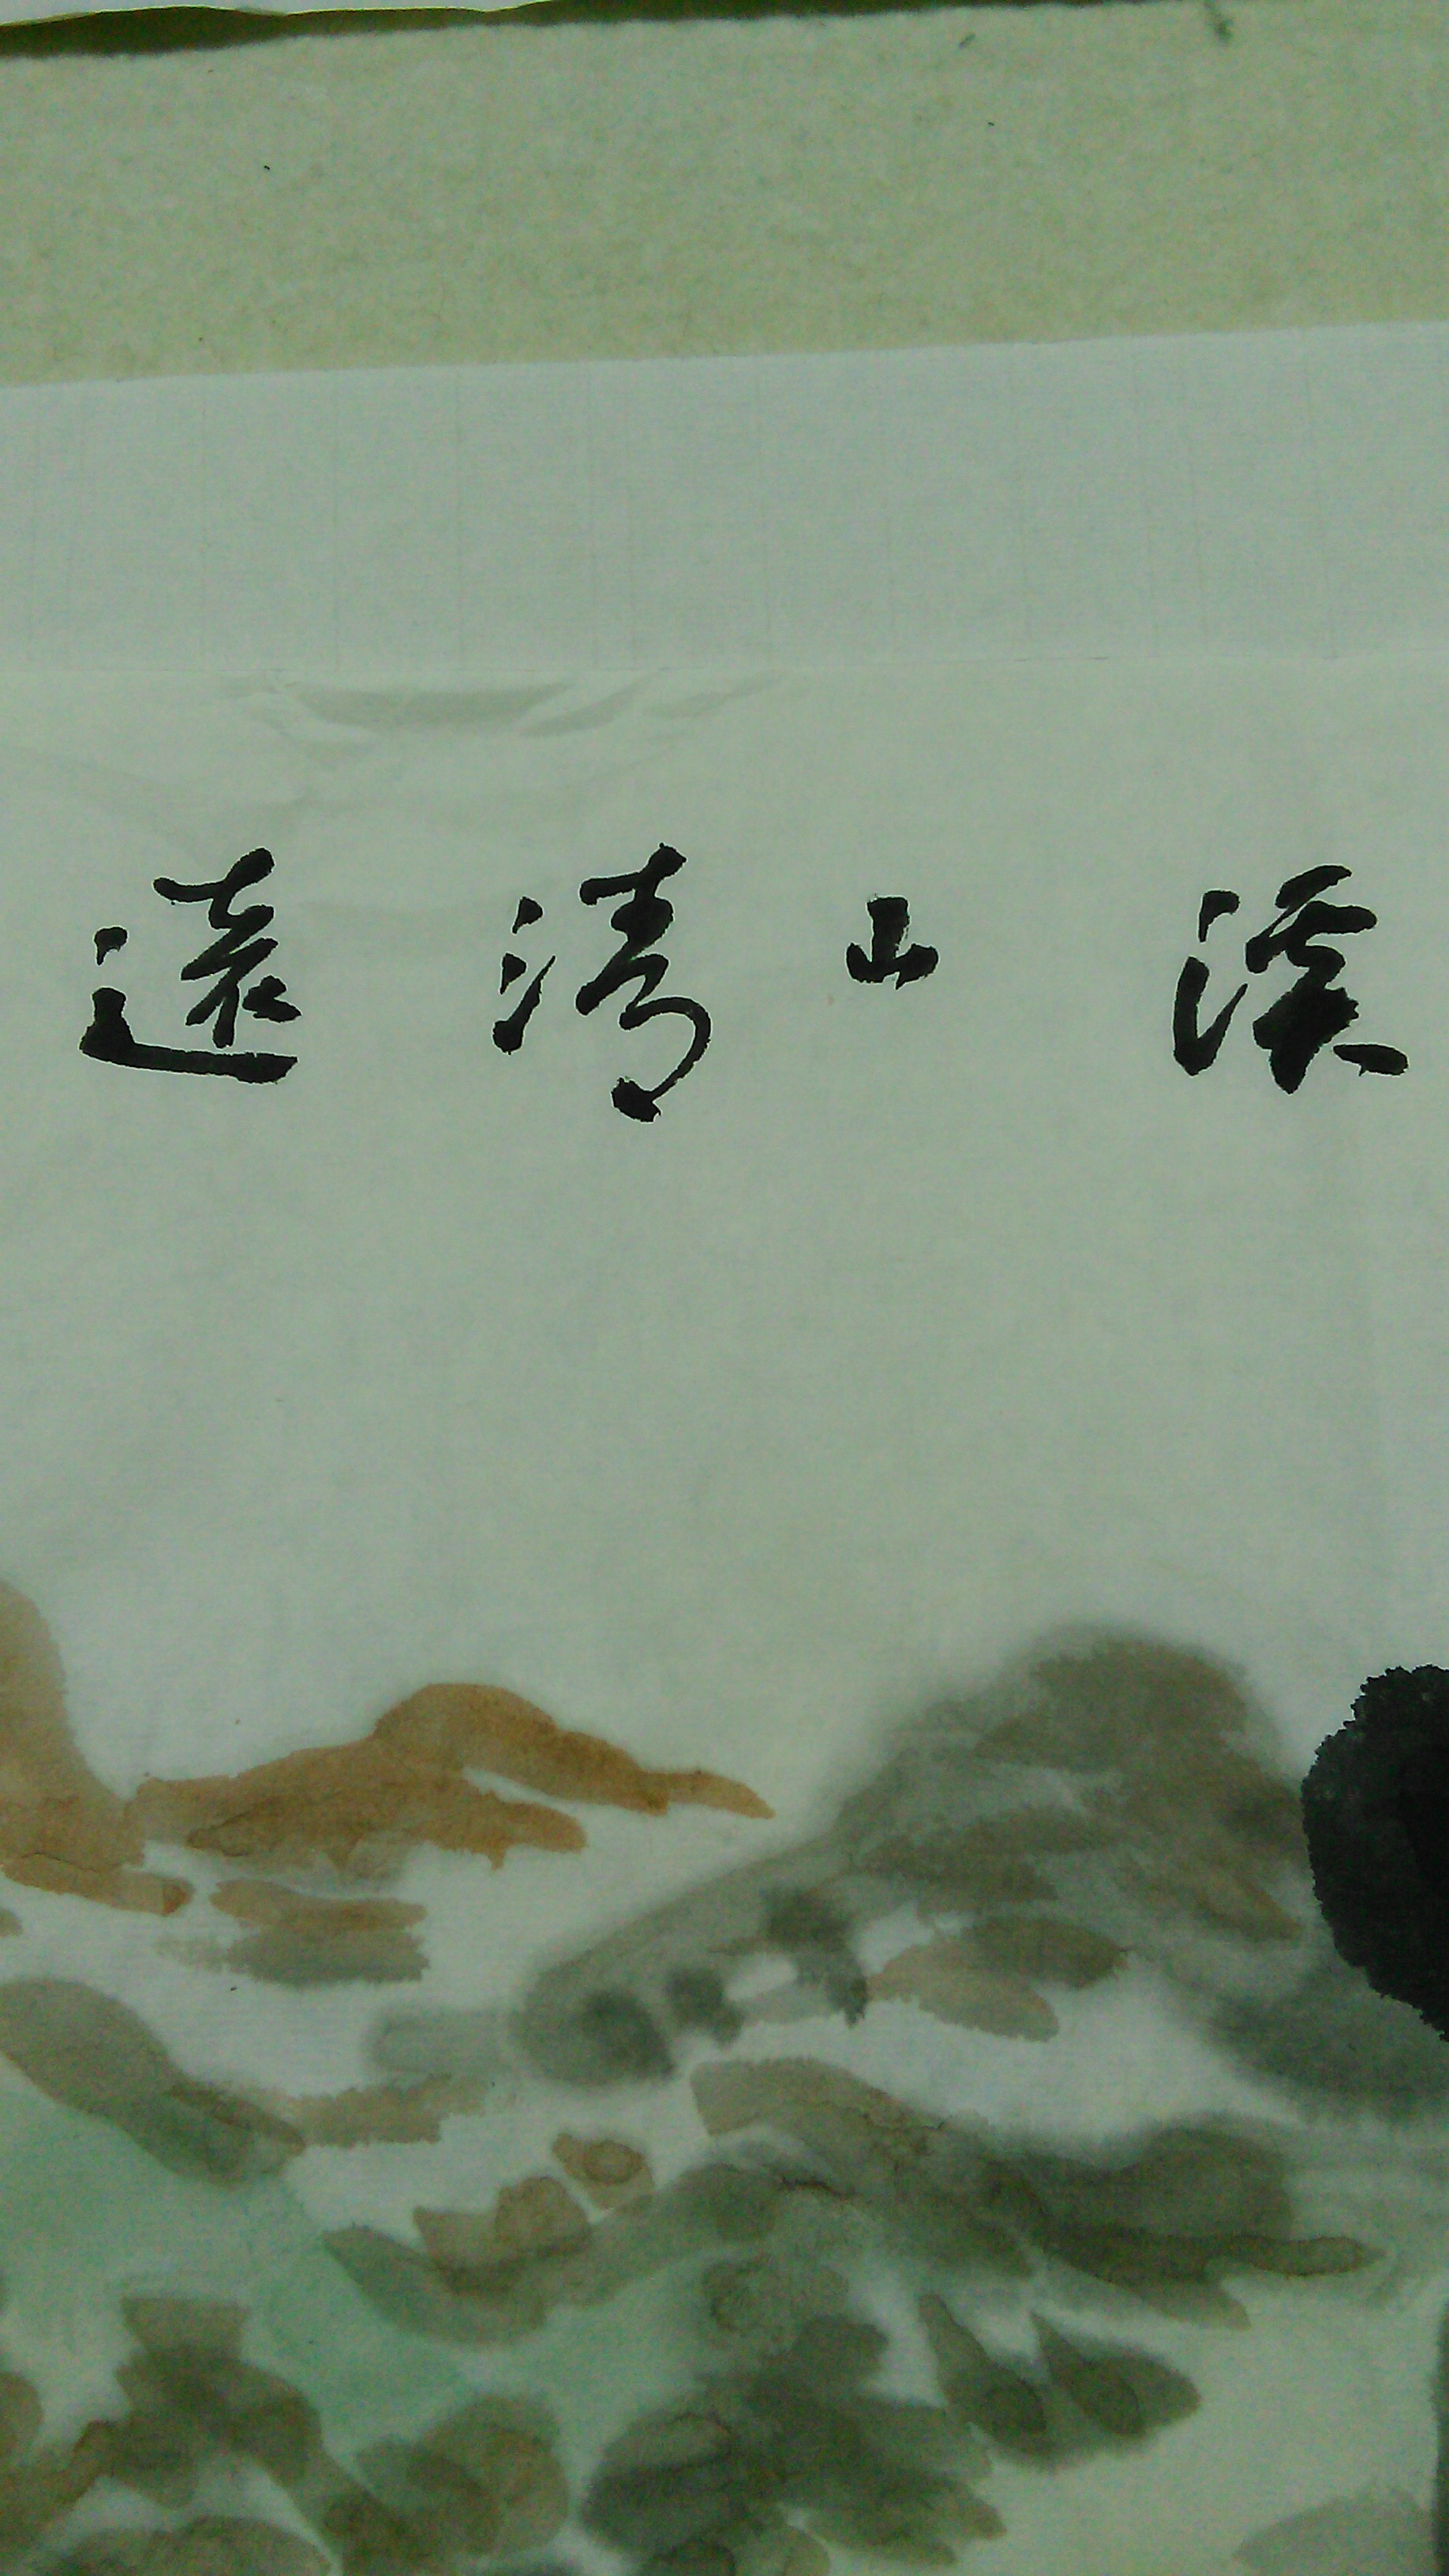 溪山清遠